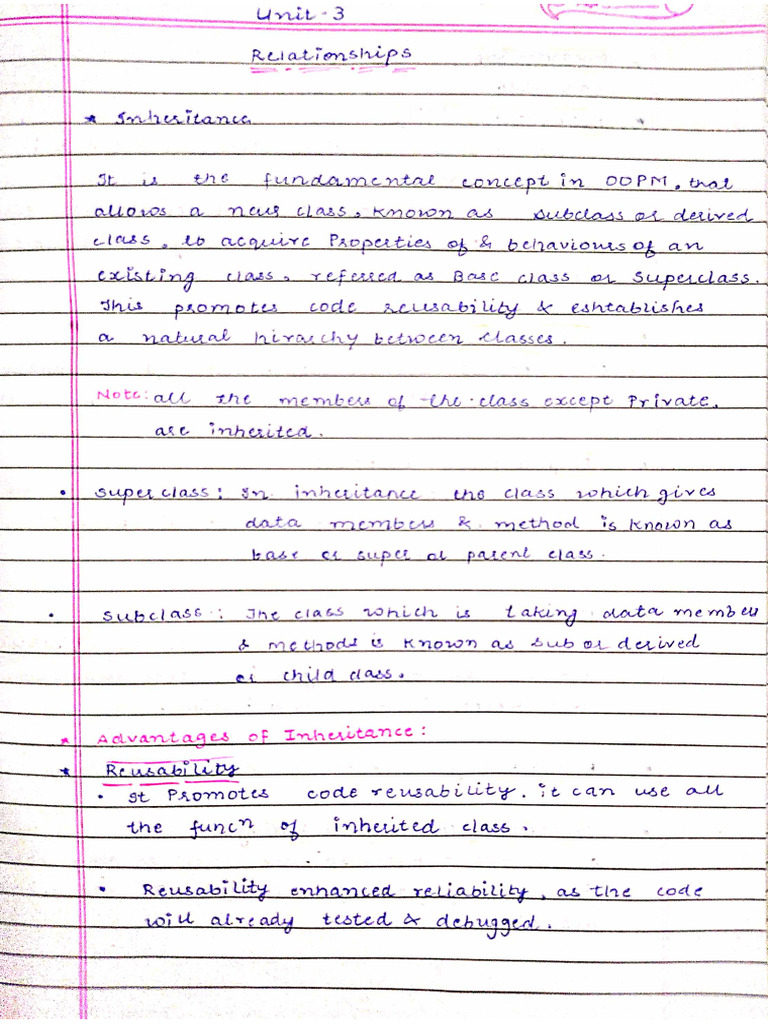 Unit-3
Relationships
* Inheritance
It is the fundamental concept in OOPM, that
allows a new class, known as subclass or derived
class, to acquire Properties of & behaviours of an
existing class, referred as Base class or Superclass.
This promotes code reusability & eshtablishes
a natural hirarchy between classes.
Note: all the members of the class except Private,
are inherited.
• superclass: In inheritance the class which gives
data members & method is known as
base or super or parent class.
• subclass: The class which is taking data member
& methods is known as sub or derived
or child class.
* Advantages of Inheritance:
* Reusability
• It Promotes code reusability. it can use all
the funcn of inherited class.
• Reusability enhanced reliability, as the code
will already tested & debugged.